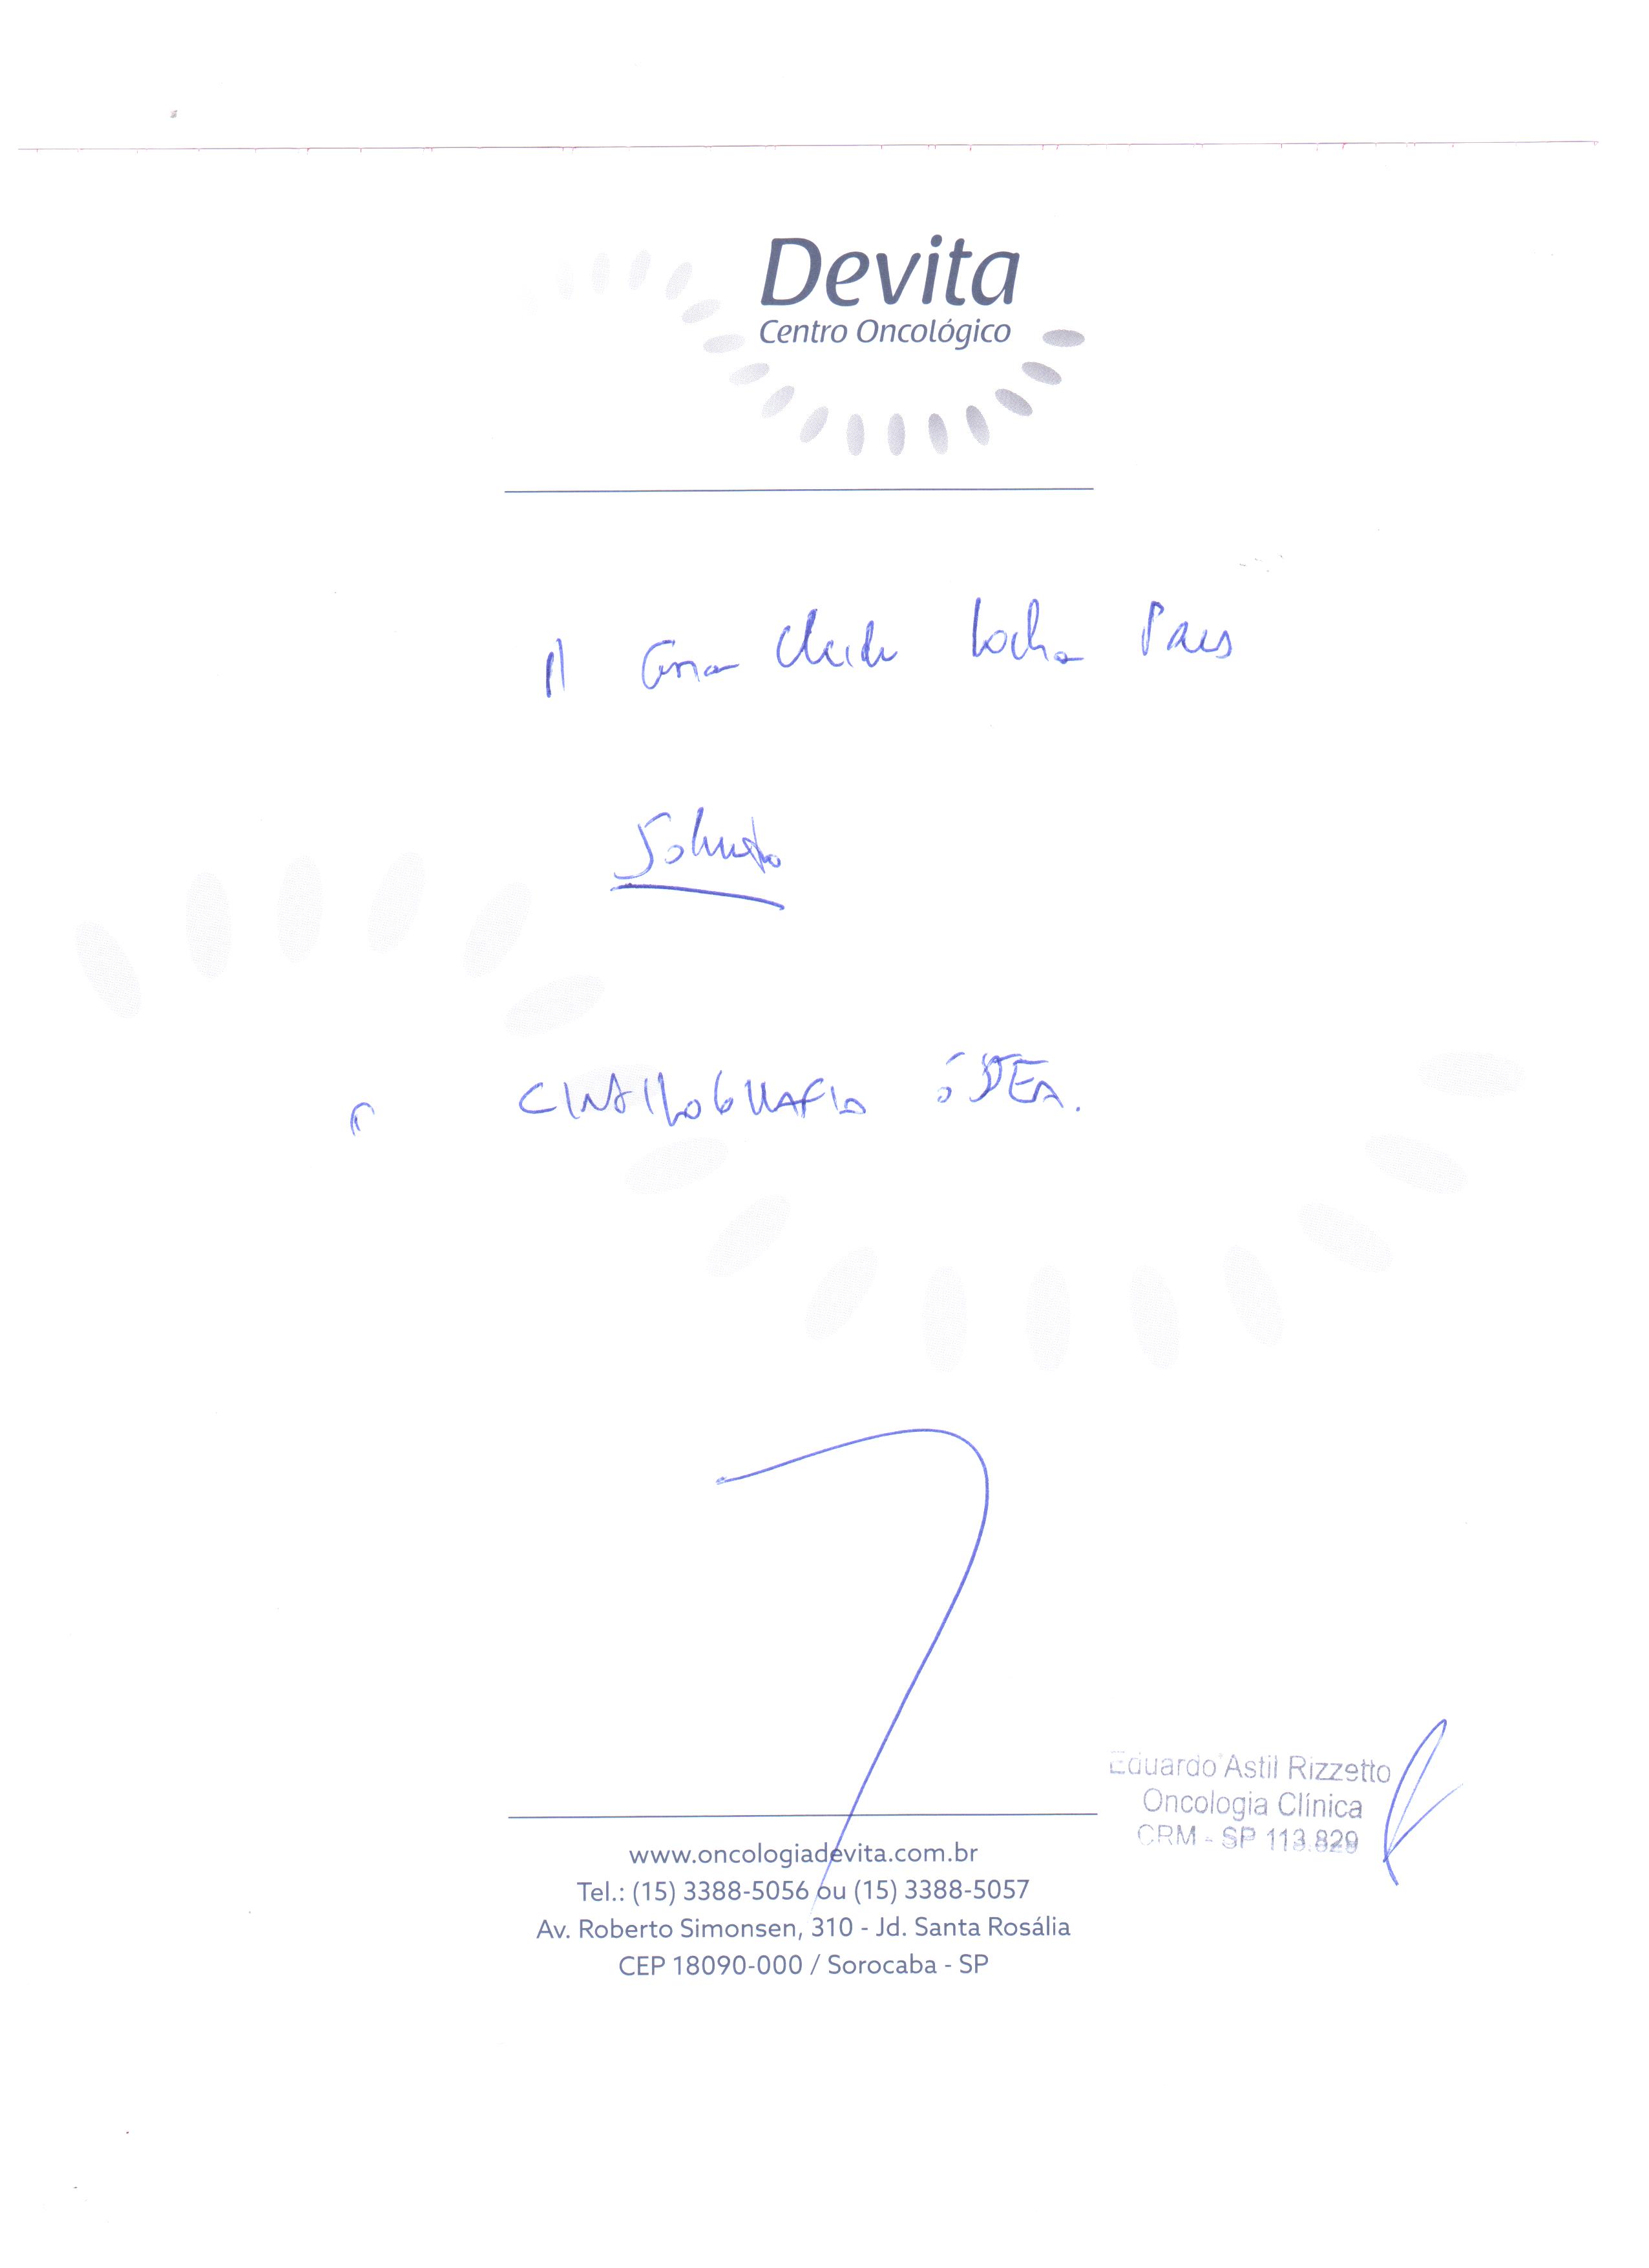 Devita
Centro Oncológico
P/ Ana Cleide Rocha Paes
Solicito
CINTILOGRAFIA ÓSSEA.
Eduardo Astil Rizzetto
Oncologia Clínica
CRM - SP 113.829
www.oncologiadevita.com.br
Tel.: (15) 3388-5056 ou (15) 3388-5057
Av. Roberto Simonsen, 310 - Jd. Santa Rosália
CEP 18090-000 / Sorocaba - SP